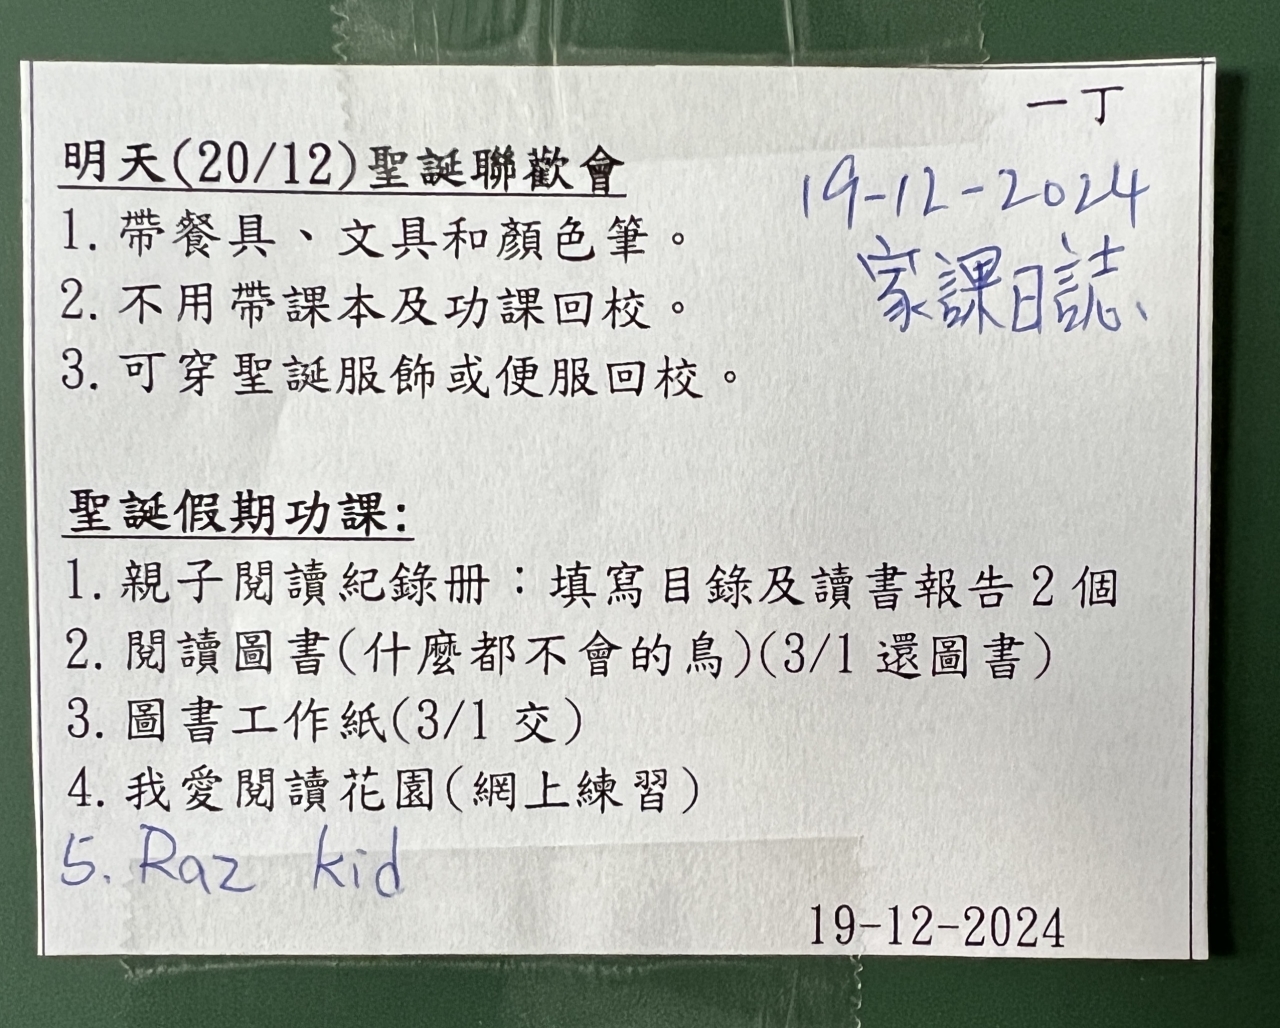 一丁
19-12-2024
家課日誌、
明天(20/12)聖誕聯歡會
1. 帶餐具、文具和顏色筆。
2. 不用帶課本及功課回校。
3. 可穿聖誕服飾或便服回校。
聖誕假期功課:
1. 親子閱讀紀錄册：填寫目錄及讀書報告2個
2. 閱讀圖書(什麼都不會的鳥)(3/1 還圖書)
3. 圖書工作紙(3/1 交)
4. 我愛閱讀花園(網上練習)
5. Raz kid
19-12-2024